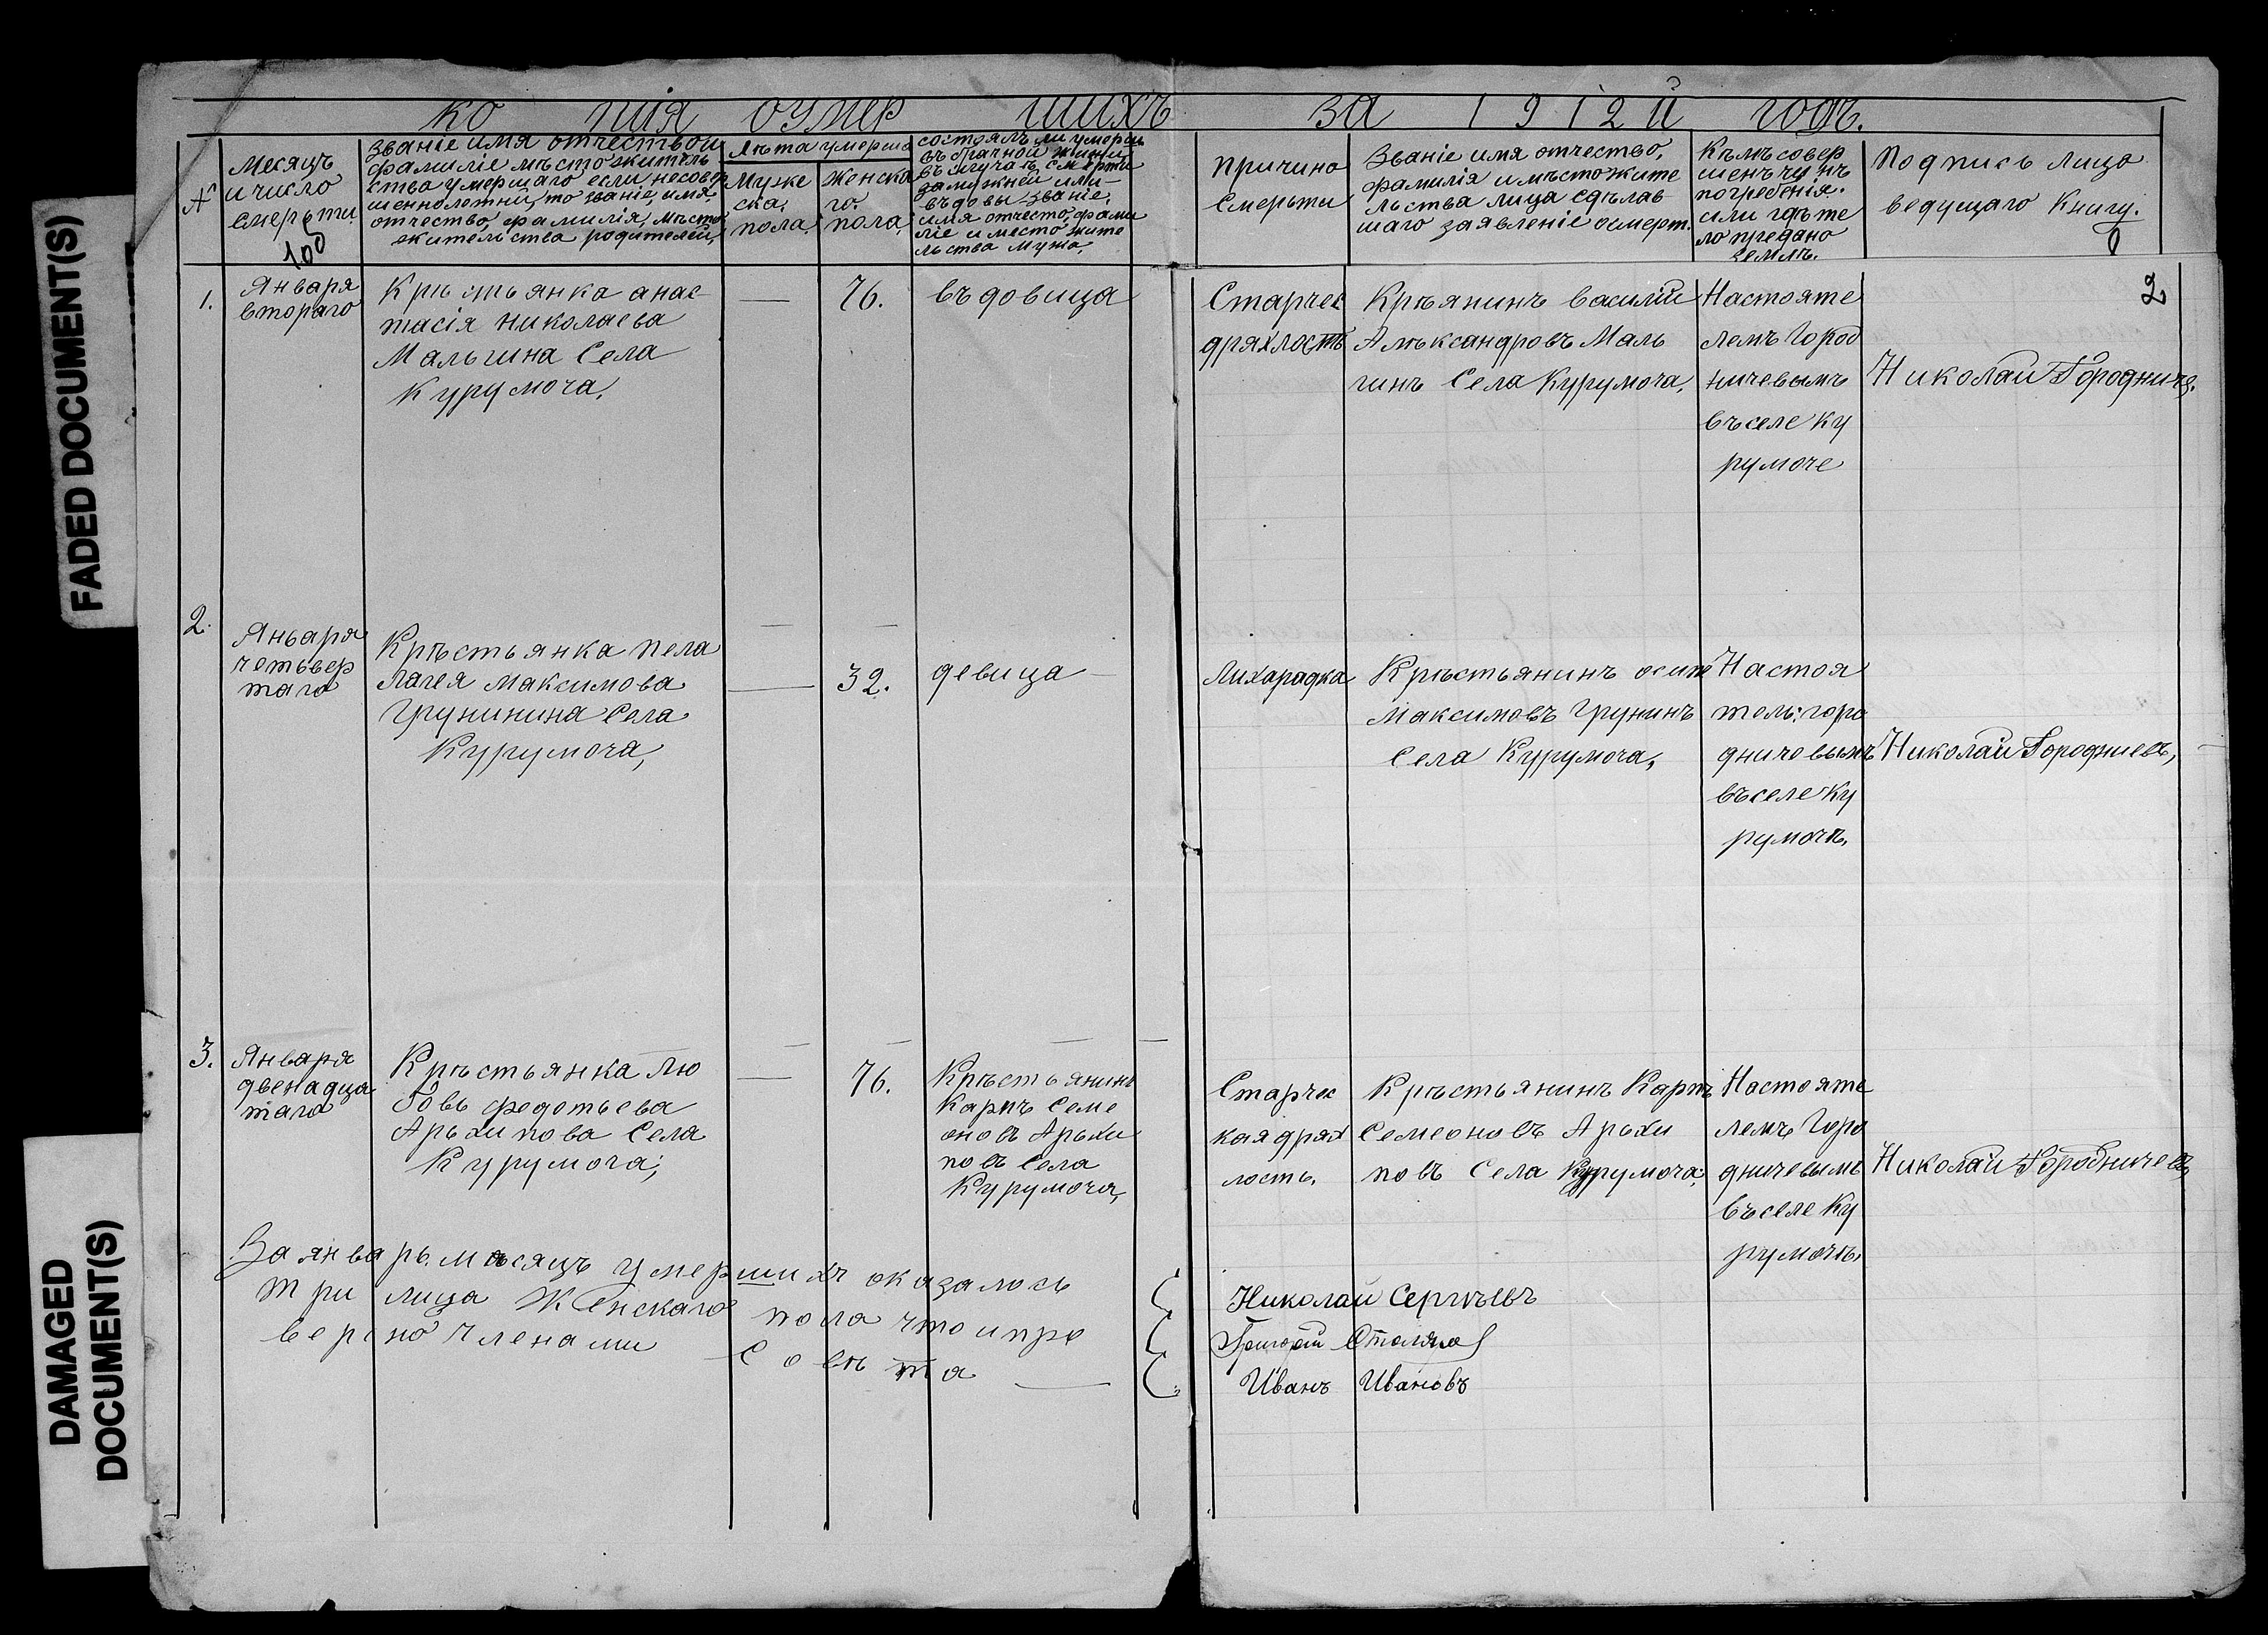 FADED DOCUMENT(S)
DAMAGED
DOCUMENT(S)
копія оумершихъ за 1912й годъ.
№
Месяцъ
и число
смерьти
100
Званіе имя отчествои
фамиліе мѣсто житель
ства умершаго если несовер
шеннолетній, то званіе, имя,
отчество, фамилія, мѣсто
жительства родителей,
Лѣта умерша
Мужс
ка,
пола.
Женска
го.
пола,
состоялъ ли умерш
въ брачной жизни
въ случаѣ смерти
замужней или
въдовы званіе,
имя отчесто, фами
ліе и место жите
льства мужа,
причина
Смерьти
Званіе имя отчество,
фамилія и мѣстожите
льства лица сдѣлав
шаго заявленіе осмерт.
Къмъ совер
шенъ чинъ
погребенія.
или гдѣ те
ло предано
землѣ.
Подпись лица
ведущаго Книгу.
2
1.
Января
втораго
Крѣстьянка анас
тасія николаева
Мальгина Села
Курумоча,
76.
въдовица
Старчес
дряхлость
Крѣянинъ василій
Алѣксандровъ Маль
гинъ Села Курумоча,
Настояте
лемъ Город
ничевымъ
въселе Ку
румоче
Николай Городниче.
2.
Января
четьвер
таго
Крѣстьянка пела
лагея максимова
Грунинина Села
Курумоча,
32.
девица
Лихарадка
Крѣстьянинъ осипъ
максимовъ Грунинъ
Села Курумоча,
Настоя
тель: горо
дничовымъ
въселе Ку
румочѣ.
Николай Городничевъ,
3.
Января
двенадца
таго
Крѣстьянка Лю
бовь федотьева
Арьхипова Села
Курумоча,
76.
Крѣстьянинъ
Карпъ Семе
оновъ Арьхи
повъ Села
Курумоча,
Старчес
кая дрях
лость.
Крѣстьянинъ Карпъ
Семеоновъ Арьхи
повъ Села Курумоча,
Настояте
лемъ Горо
дничевымъ
въселе Ку
румочѣ,
Николай Городничевъ
За январь. мѣсяцъ умершихъ оказалось
три лица Женскаго пола что и про
верено Членами Совѣта
Николай Сергѣевъ
Григорій Столяро
Иванъ Ивановъ